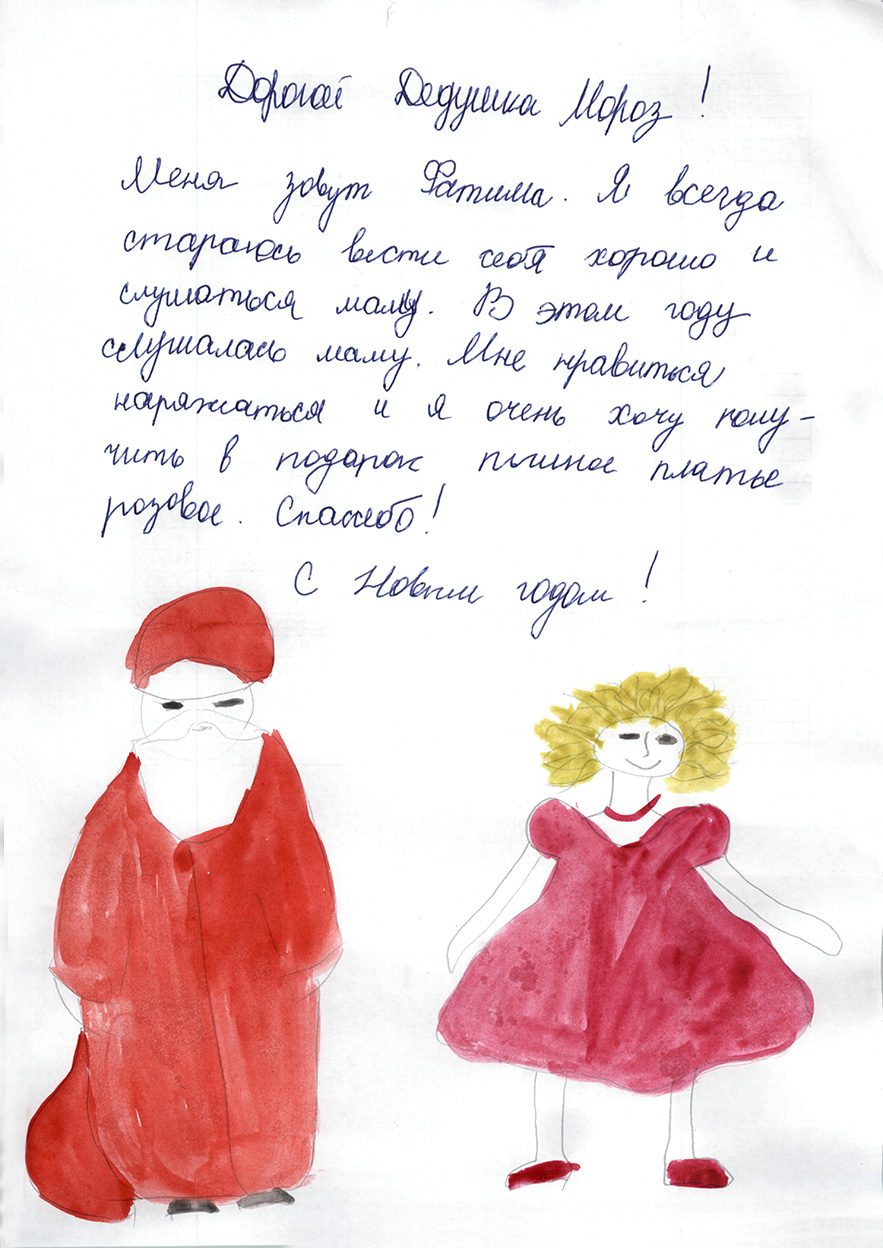 Дорогой Дедушка Мороз!
Меня зовут Фатима. Я всегда
стараюсь вести себя хорошо и
слушаться маму. В этом году
слушалась маму. Мне нравиться
наряжаться и я очень хочу полу-
чить в подарок пышное платье
розовое. Спасибо!
С Новым годом!